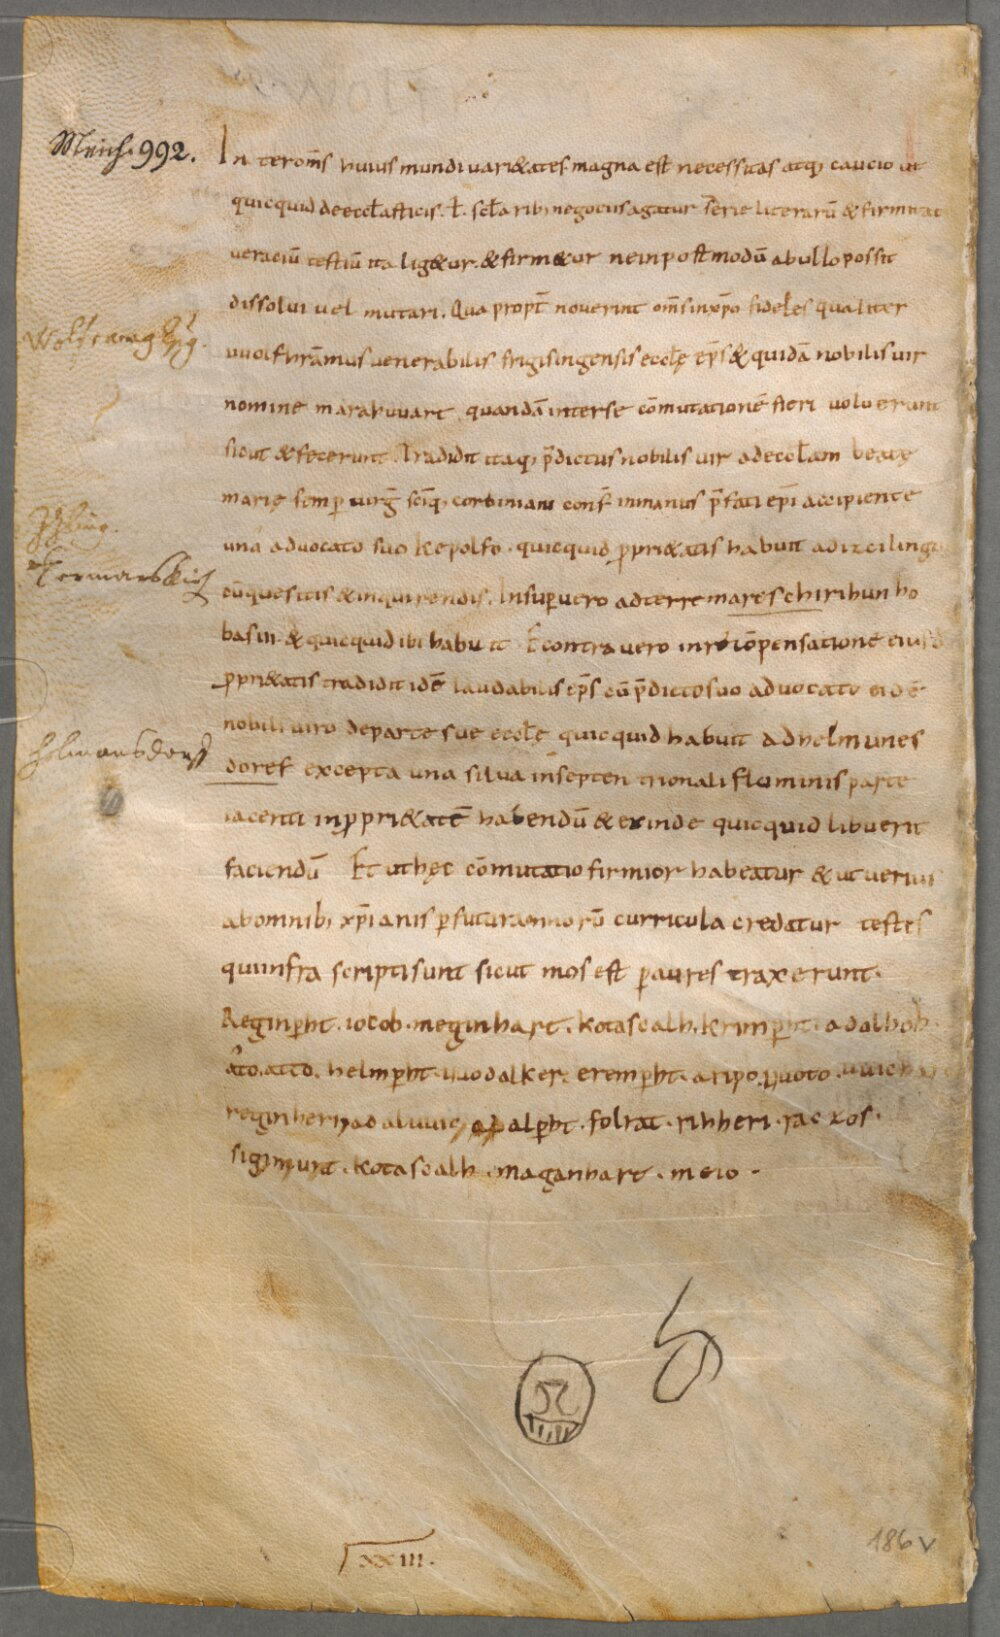 Meich. 992.
In ter om̄s huius mundi uari&ates magna est necessitas atq; caucio ut
quicquid de eccl̄asticis. ł. scl̄aribꝫ negociis agatur serie literarū & firmitat
ueraciū testiū ita lig&ur. & firm&ur ne in postmodū ab ullo possit
dissolui uel mutari. Qua propt̄ nouerint om̄s in xp̄o fideles qualiter
Wolframg Ep̄g.
uuolfhrāmus uenerabilis frigisingensis eccl̄ę ep̄s & quidā nobilis uir
nomine marahuuart quandā inter se cōmutationē fieri uoluerunt
sicut & fecerunt. Tradidit itaq; p̄dictus nobilis uir ad eccl̄am beatę
marię semp uirḡ sc̄iq; corbiniani conf̄ in manus p̄fati ep̄i accipiente
una aduocato suo kepolfo. quicquid ꝓpri&atis habuit ad izcilinga
Termarskirch
cū quesitis & inquirendis. Insup uero ad terre mareschirihun ho
bas III & quicquid ibi habuit. E contra uero in recōpensatione eiusdē
ꝓpri&atis tradidit idē laudabilis ep̄s cū p̄dicto suo aduocato eidē
nobili uiro de parte sue eccl̄ę quicquid habuit ad helmunes
Helmansdorff
doref excepta una silua in septentrionali fluminis parte
iacenti in ꝓpri&atē habendū & exinde quicquid libuerit
faciendū Et ut hęc cōmutatio firmior habeatur & ut uerius
ab omnibꝫ xp̄ianis p futura annorū curricula credatur testes
qui infra scripti sunt sicut mos est p aures traxerunt.
Reginp̄ht. iocob. meginhart. kotascalh. krimp̄ht. adalhoh.
ato. atto. helmp̄ht. uodalker. eremp̄ht. aripo. ruoto. uuichart
reginheri adaluuic adalp̄ht. folrat. rihheri. racxos.
sigimunt. kotascalh. maganhart. meio.
XXIII.
186v